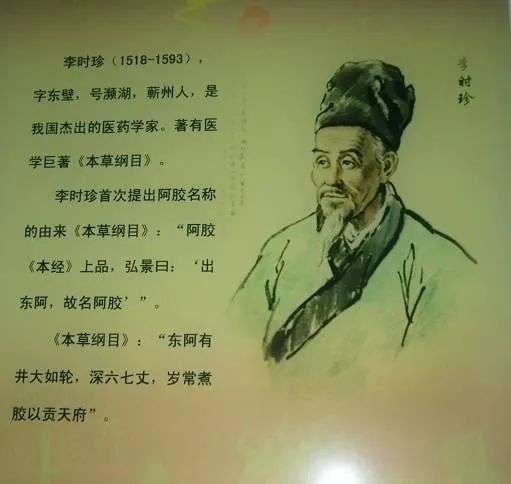 李时珍（1518-1593），
字东壁，号濒湖，蕲州人，是
我国杰出的医药学家。著有医
学巨著《本草纲目》。
李时珍首次提出阿胶名称
的由来《本草纲目》：“阿胶
《本经》上品，弘景曰：‘出
东阿，故名阿胶’”。
《本草纲目》：“东阿有
井大如轮，深六七丈，岁常煮
胶以贡天府”。
李时珍